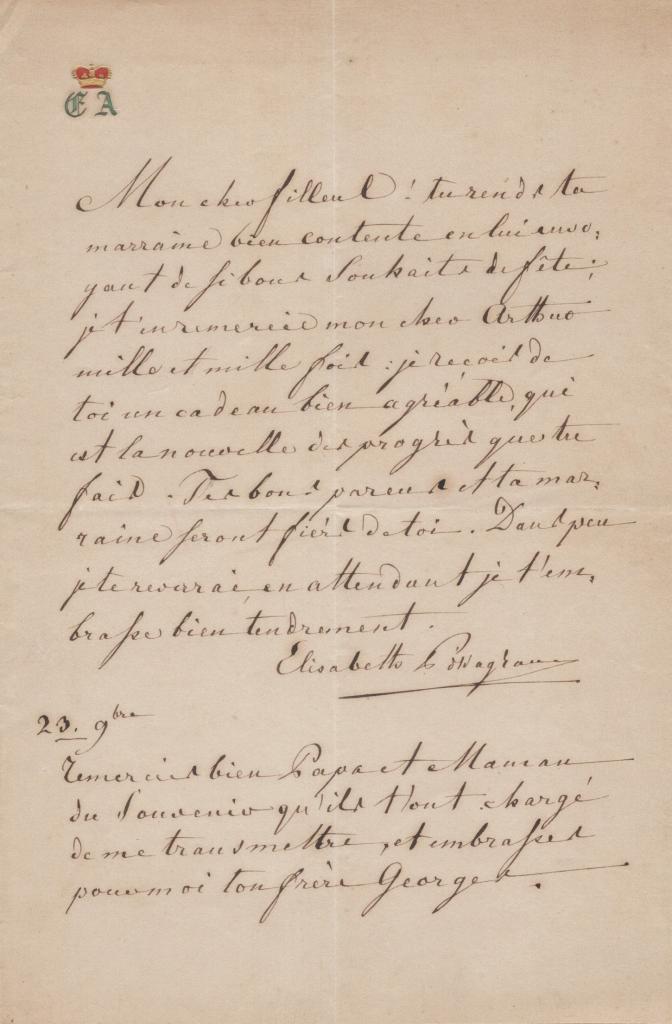 E A
Mon cher filleul ! tu rends ta
marraine bien contente en lui envo,
yant de si bons souhaits de fête ;
je t'en remercie mon cher Arthur
mille et mille fois : je reçois de
toi un cadeau bien agréable, qui
est la nouvelle des progrès que tu
fais . Tes bons parens et ta mar,
raine seront fiers de toi . Dans peu
je te reverrai, en attendant je t'em,
brasse bien tendrement .
Elisabeth
23. 9bre
Remercies bien Papa et Maman
du Souvenir qu'ils t'ont chargé
de me transmettre, et embrasses
pour moi ton frère Georges .